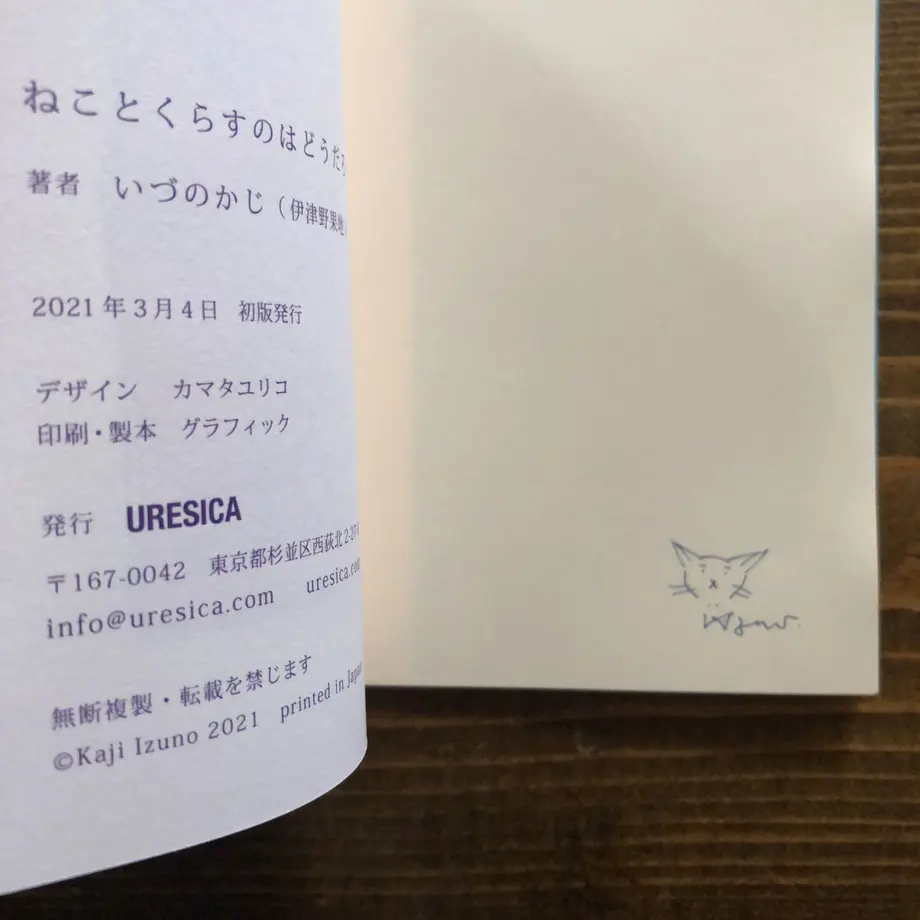 ねことくらすのはどうだろ
著者 いづのかじ（伊津野果地）
2021年3月4日 初版発行
デザイン カマタユリコ
印刷・製本 グラフィック
発行 URESICA
〒167-0042 東京都杉並区西荻北2-27-
info@uresica.com uresica.com
無断複製・転載を禁じます
©Kaji Izuno 2021 printed in Japan